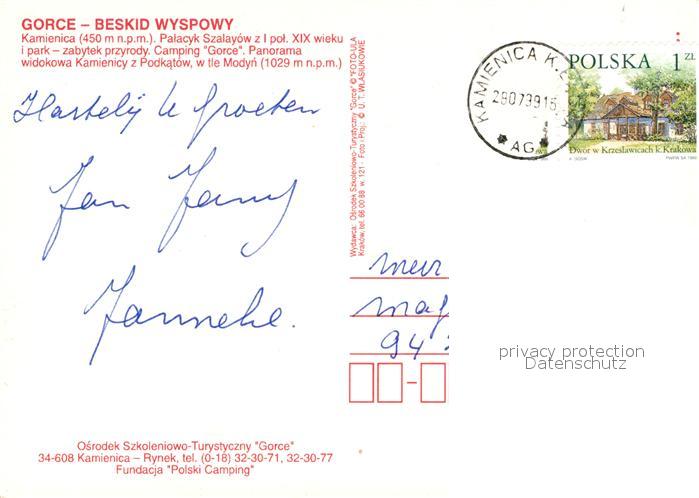 GORCE – BESKID WYSPOWY
Kamienica (450 m n.p.m.). Pałacyk Szalayów z I poł. XIX wieku
i park – zabytek przyrody. Camping "Gorce". Panorama
widokowa Kamienicy z Podkątów, w tle Modyń (1029 m n.p.m.)
Hartelijke Groeten
Jan
Janneke.
Ośrodek Szkoleniowo-Turystyczny "Gorce"
34-608 Kamienica – Rynek, tel. (0-18) 32-30-71, 32-30-77
Fundacja "Polski Camping"
Wydawca: Ośrodek Szkoleniowo-Turystyczny "Gorce" © "FOTO-ULA
Kraków, tel. 66 00 88 w. 121 · Foto i Proj.: © U. T. WŁASIUKOWIE
KAMIENICA K.
280799 16
AG
POLSKA 1 ZŁ
Dwór w Krzesławicach k. Krakowa
94
privacy protection
Datenschutz